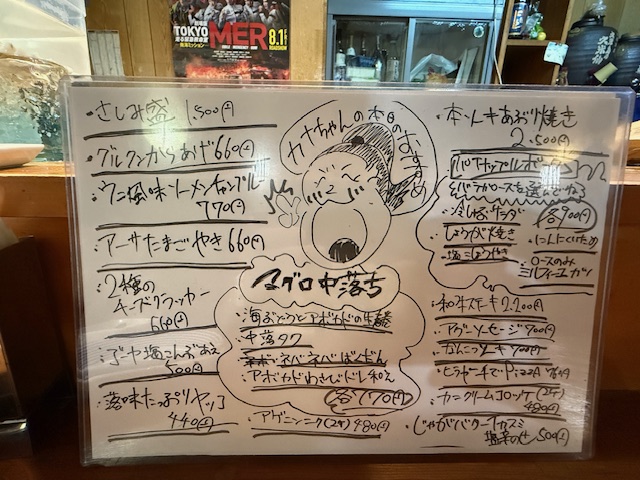 TOKYO
MER
8.1
・さしみ盛 1,500円
・グルクンからあげ 660円
・ウニ風味ソーメンチャンプルー
770円
・アーサたまごやき 660円
・2種の
チーズクラッカー
660円
・ゴーヤ塩こんぶあえ
500円
・薬味たっぷりヤッコ
440円
カナちゃんの本日の
おすすめ
マグロ中落ち
・海ぶどうとアボカドの生春巻
・中落タク
・ネバネバばくだん
・アボカドわさびドレ和え
各770円
・アゲニンニク(2ケ) 480円
あぶり焼き
2,500円
各900円
・冷しゃぶサラダ
・しょうが焼き
・にんにくいため
・塩こしょうやき
・ロースのみ
ミルフィーユカツ
・和牛ステーキ 2,200円
・アグーソーセージ 700円
・なんこつソーキ 700円
・ヒラヤーチでPizza
・カニクリームコロッケ(2ケ)
480円
・じゃがバター
塩辛のせ 500円